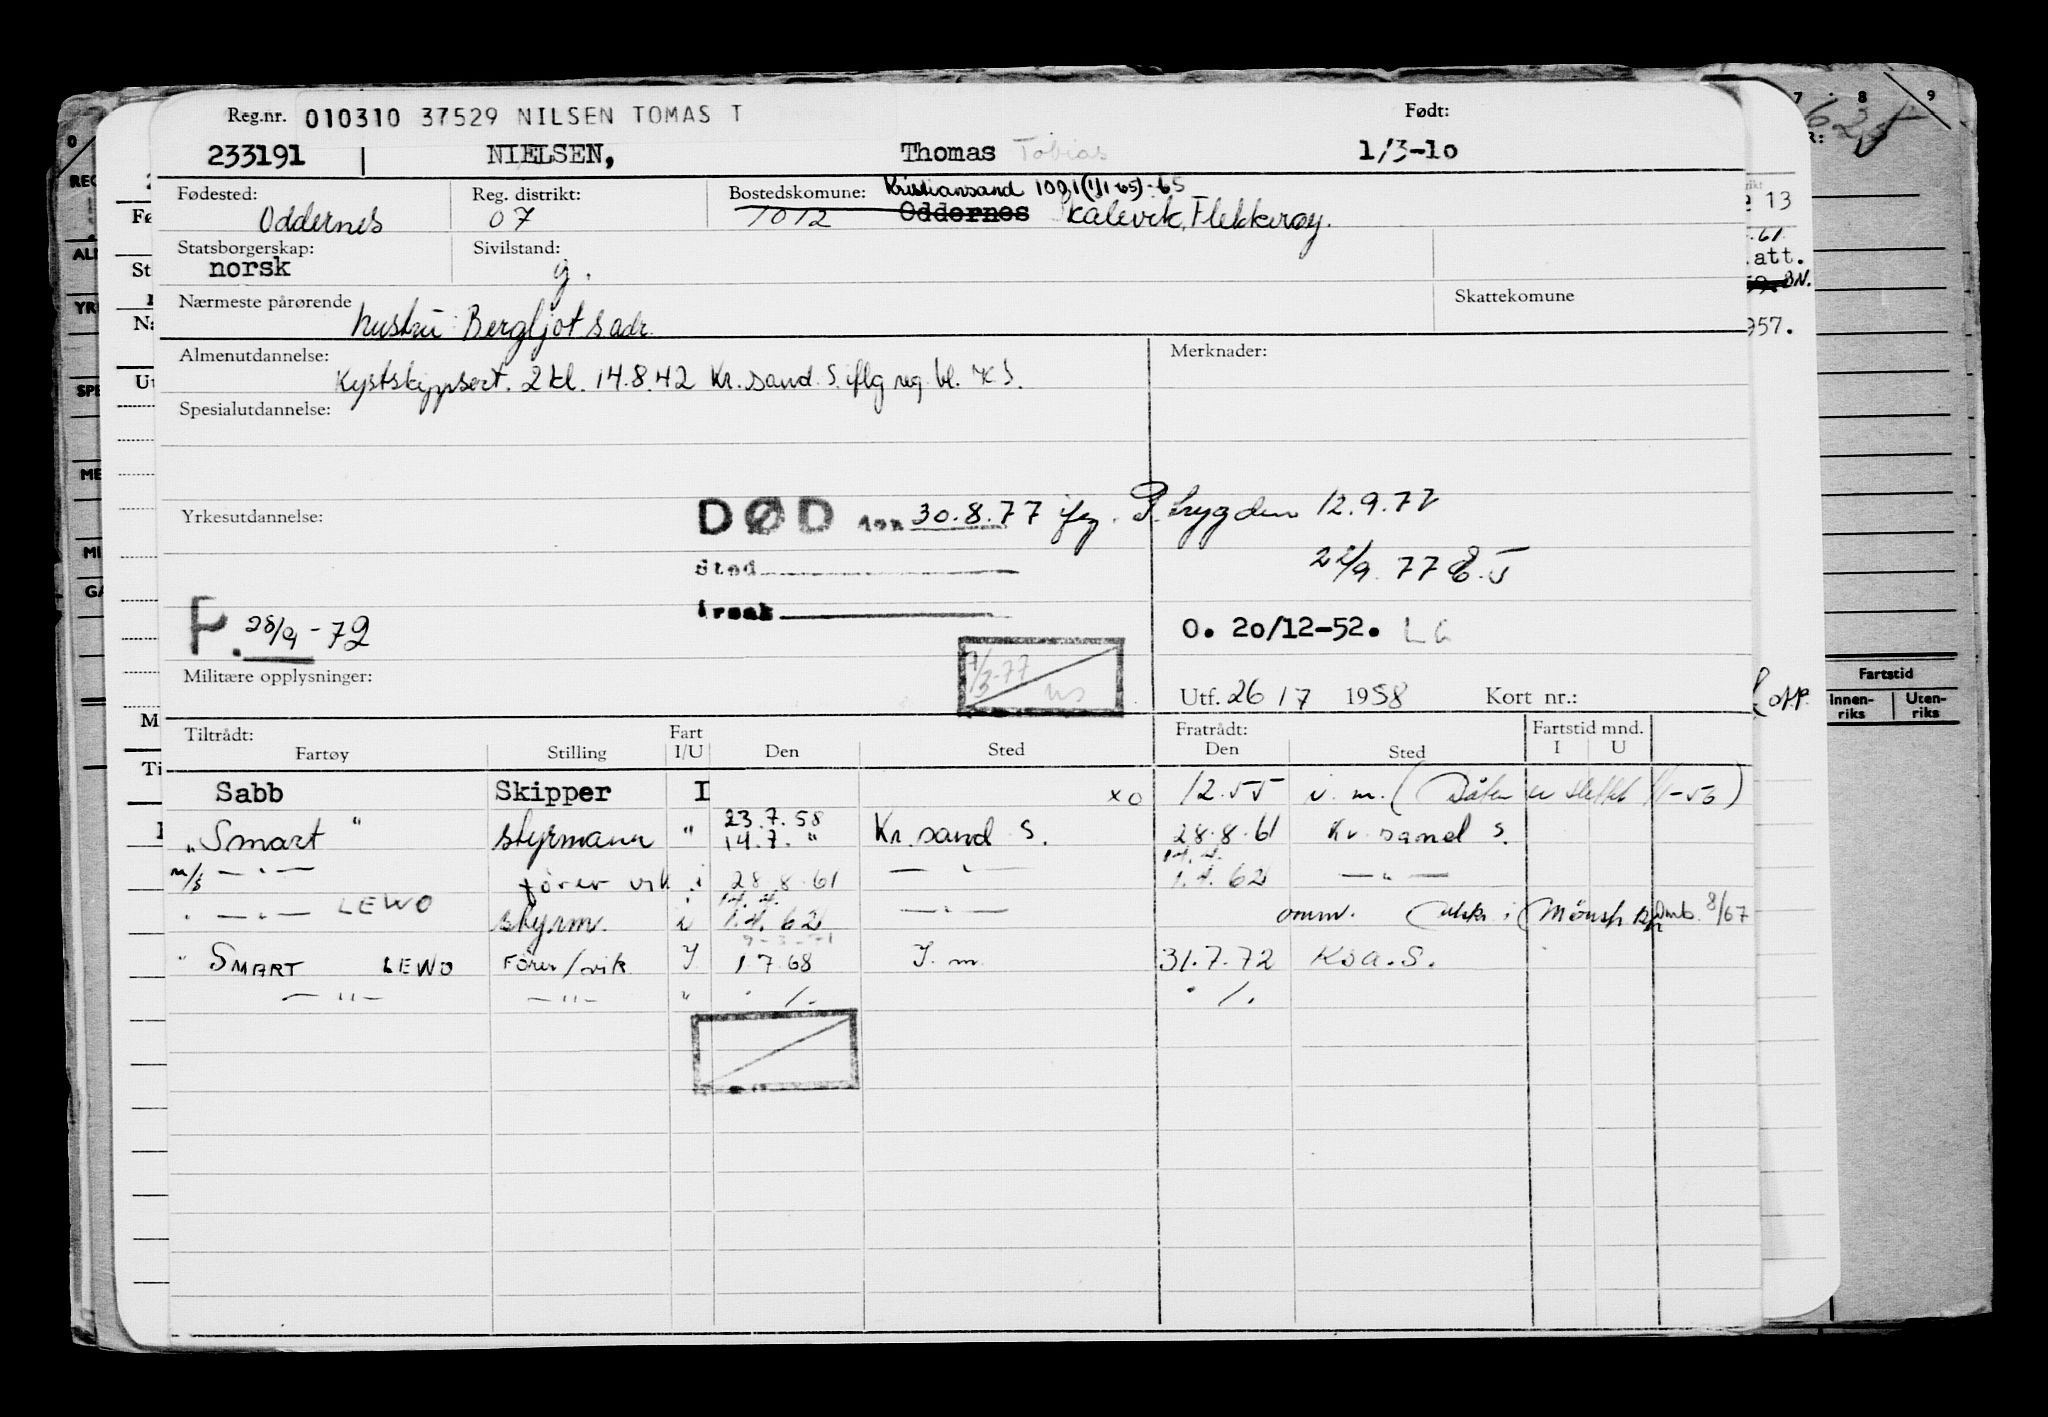 Reg.nr. 010310 37529 NILSEN TOMAS T Født:
233191 NIELSEN, Thomas Tobias 1/3-10
Fødested: Reg. distrikt: Bostedskomune: Kristiansand 1001 (1/1-65)-65
Oddernes 07 1012 Oddernes Skålevik, Flekkerøy.
Statsborgerskap: Sivilstand:
norsk g.
Nærmeste pårørende Skattekomune
hustru: Bergljot s adr.
Almenutdannelse: Merknader:
Kystskippsert. 2 kl. 14.8.42 Kr.sand S. iflg reg. bl. K.S.
Spesialutdannelse:
Yrkesutdannelse:
DØD den 30.8.77 ifg. P. trygden 12.9.77
Sted 22/9. 77 E.T
Årsak
P. 28/9-72 O. 20/12-52. LG
7/3-77
Militære opplysninger: Utf. 26/7 1958 Kort nr.:
Tiltrådt: Fart Fratrådt: Fartstid mnd.
Fartøy Stilling I/U Den Sted Den Sted I U
Sabb Skipper I xo 12.55 i. m. (Båten er slettet 11-56)
23.7.58
"Smart" styrmann " 14.7. " Kr.sand S. 28.8.61 Kr.sand S.
14.4.
m/s — " — fører vik i 28.8.61 — " — 1.4.62 — " —
14.4.
" — " — LEWO styrm. i 1.4.62 — " — omm. 8/67
" SMART LEWO Fører/vik I 1.7.68 I. m. 31.7.72 Krsa.S.
— " — — " — " ./. ./.
0 7 8 9
13
.61
.att.
BN.
957.
Fartstid
Innen-riks Uten-riks